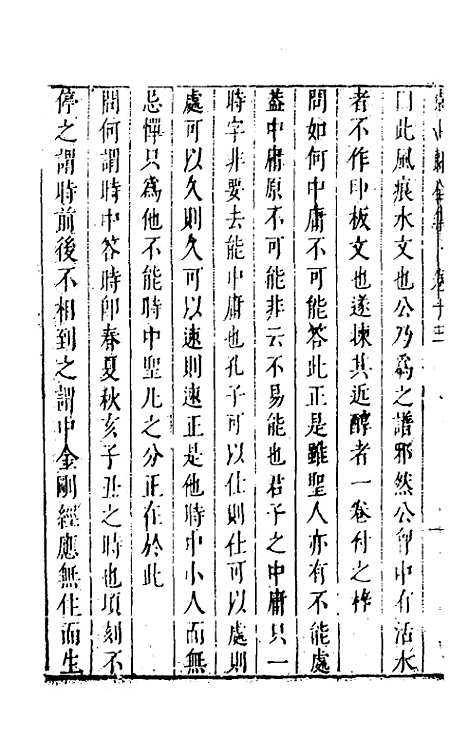 曰此風痕水文也公乃爲之譜邪然公胷中有活水
者不作印板文也遂揀其近醇者一卷付之梓
問如何中庸不可能答此正是雖聖人亦有不能處
蓋中庸原不可能非云不易能也君子之中庸只一
時字非要去能中庸也孔子可以仕則仕可以處則
處可以久則久可以速則速正是他時中小人而無
忌憚只爲他不能時中聖凡之分正在於此
問何謂時中答時卽春夏秋亥子丑之時也頃刻不
停之謂時前後不相到之謂中金剛經應無住而生